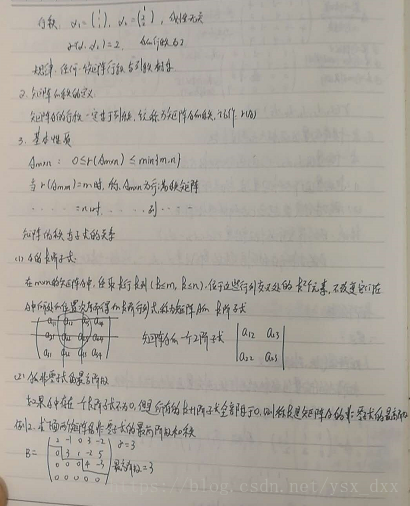 行秩 α₁=(1 1), α₂=(1 2), 线性无关
r(α₁, α₂)=2, A的行秩为2
规律：任何一个矩阵行秩与列秩相等
2. 矩阵的秩的定义
矩阵A的行秩一定等于列秩，统称为矩阵A的秩，记作 r(A)
3. 基本性质
Aₘₓₙ: 0≤r(Aₘₓₙ)≤min{m,n}
当 r(Aₘₓₙ)=m时, 称Aₘₓₙ为行满秩矩阵
· · · · · =n时 · · · · 列 · · · ·
矩阵的秩与子式的关系
(1) A的k阶子式:
在m×n的矩阵A中，任取k行k列(k≤m, k≤n)，位于这些行列交叉处的k²个元素，不改变它们在
A中所处的位置次序而得的k阶行列式，称为矩阵A的k阶子式
a₁₁ a₁₂ a₁₃ a₁₄
a₂₁ a₂₂ a₂₃ a₂₄ 矩阵A的一个2阶子式 | a₁₂ a₁₃
a₃₁ a₃₂ a₃₃ a₃₄ a₂₂ a₂₃ |
(2) A的非零子式的最高阶数
如果A中存在一个k阶子式不为0，但是所有的k+1阶子式全部等于0，则称k是矩阵A的非零子式的最高阶数
例2. 求下面的矩阵B非零子式的最高阶数和秩
2 -1 0 3 -2 r=3
B= 0 3 1 -2 5
0 0 0 4 -3 最高阶数=3
0 0 0 0 0
https://blog.csdn.net/ysx_dxx